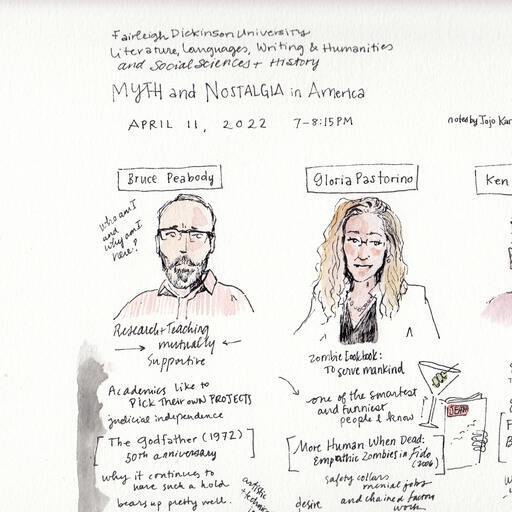 Fairleigh Dickinson University
Literature, Languages, Writing & Humanities
and Social Sciences + History
MYTH and NOSTALGIA in America
APRIL 11, 2022 7-8:15PM
notes by Jojo Kar
Bruce Peabody
who am I
and
why am I
here?
Research + Teaching
mutually
Supportive
Academics like to
PICK Their own PROJECTS
judicial independence
The Godfather (1972)
50th anniversary
why it continues to
have such a hold
bears up pretty well.
artistic
+
Gloria Pastorino
Zombie Cookbook:
To serve mankind
one of the smartest
and funniest
people I know
More Human When Dead:
Empathic Zombies in Fido
(2006)
safety collars
menial jobs
and chained factory
work
desire
Ken